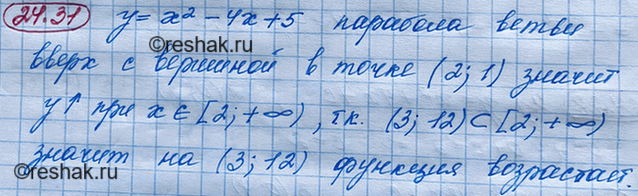 24.31 y = x² - 4x + 5 парабола ветви
©reshak.ru ©reshak.ru
вверх с вершиной в точке (2; 1) значит
y↑ при x ∈ [2; +∞), т.к. (3; 12) ⊂ [2; +∞)
©reshak.ru ©reshak.ru
значит на (3; 12) функция возрастает.